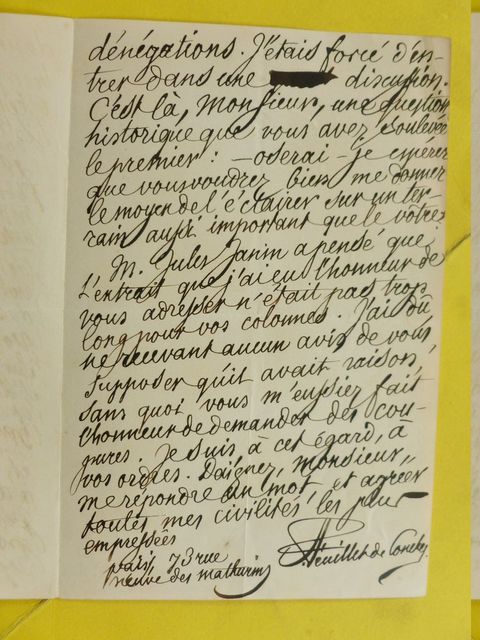 dénégations. J'étais forcé d'en-
trer dans une discussion.
C'est là, Monsieur, une question
historique que vous avez soulevée
le premier : — oserai-je espérer
que vous voudrez bien me donner
le moyen de l'éclairer sur un ter-
rain aussi important que le vôtre
M. Jules Janin a pensé que
l'extrait que j'ai eu l'honneur de
vous adresser n'était pas trop
long pour vos colonnes. J'ai dû
ne recevant aucun avis de vous
supposer qu'il avait raison,
sans quoi vous m'eussiez fait
l'honneur de demander des cou-
pures. Je suis à cet égard, à
vos ordres. Daignez, Monsieur,
me répondre un mot et agréer
toutes mes civilités les plus
empressées
F. Feuillet de Conches
paris, 73 rue
neuve des mathurins